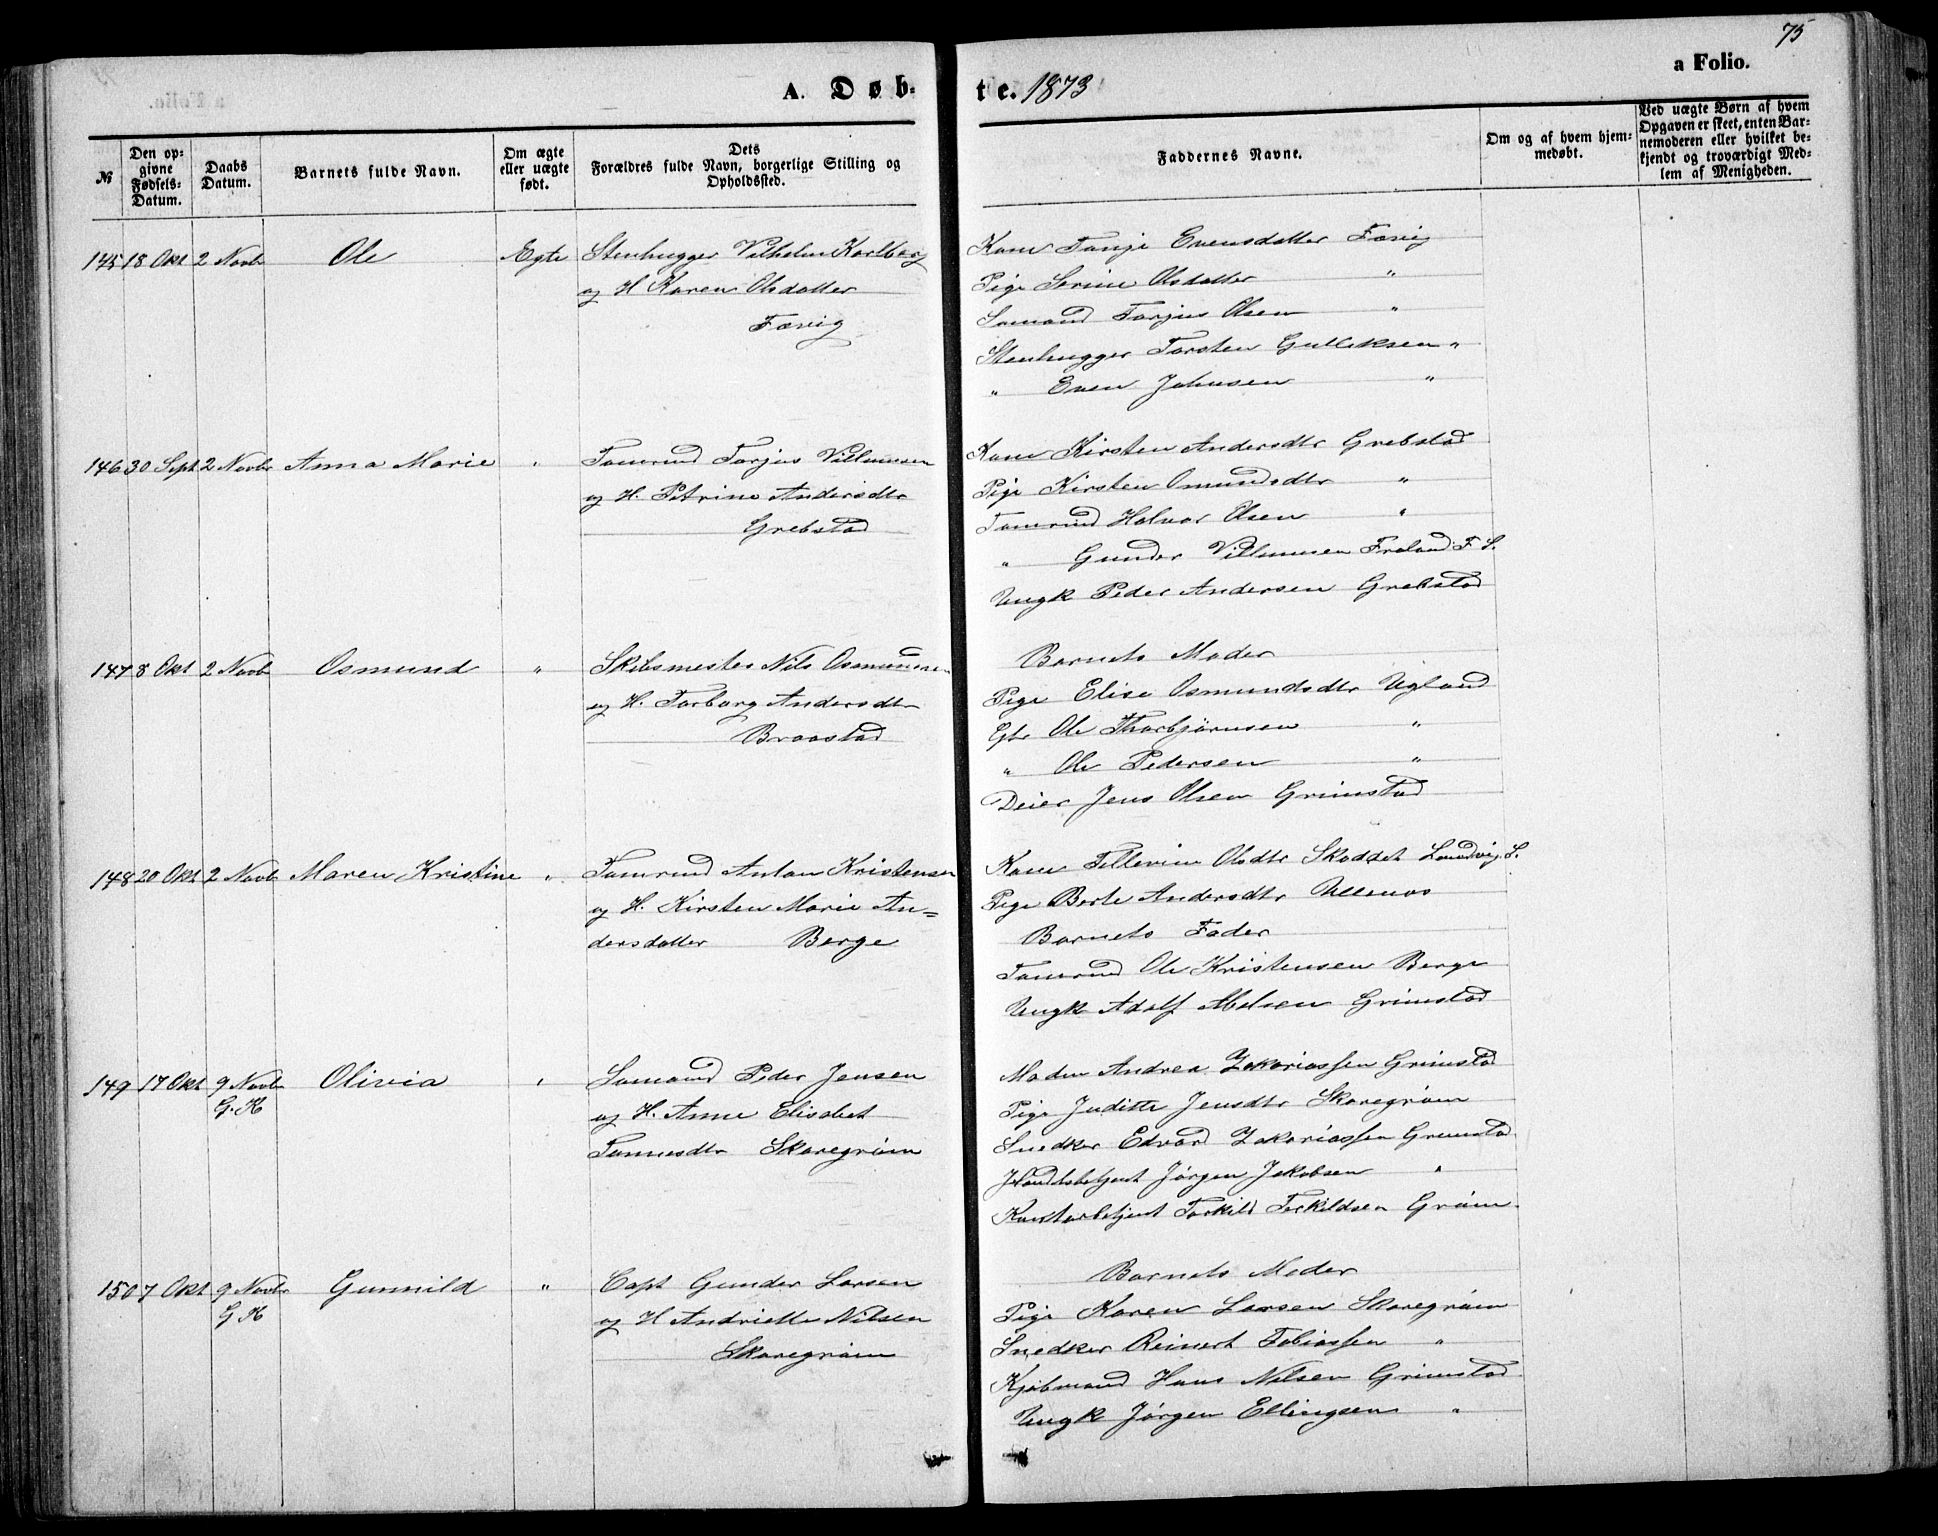 75
A. Døb-
te. 1873
a Folio.
№
Den op-
givne
Fødsels-
Datum.
Daabs
Datum.
Barnets fulde Navn.
Om ægte
eller uægte
født.
Dets
Forældres fulde Navn, borgerlige Stilling og
Opholdssted.
Faddernes Navne.
Om og af hvem hjem-
medøbt.
Ved uægte Børn af hvem
Opgaven er skeet, enten Bar-
nemoderen eller hvilket be-
kjendt og troværdigt Med-
lem af Menigheden.
145 18 Okt 2 Novb Ole Egte Stenhugger Vilhelm Karlberg
og H Karen Olsdatter
Fævig
Kone Tonje Evensdatter Fævig
Pige Serine Olsdatter "
Sømand Torjus Olsen "
Stenhugger Torsten Gulleksen "
" Even Johnsen "
146 30 Sept 2 Novbr Anna Marie " Tømrmd Torjus Villumsen
og H. Petrine Andersdtr
Grebstad
Kone Kirsten Andersdtr Grebstad
Pige Kirsten Omundsdtr "
Tømrmd Halvor Olsen "
" Gunder Villumsen Froland F S.
Ungk Peder Andersen Grebstad
147 8 Okt 2 Novb Osmund " Skibsmester Nils Osmundsen
og H. Torborg Andersdtr
Braastad
Barnets Moder
Pige Elise Osmundsdtr Ugland
Gbr Ole Thorbjørnsen "
" Ole Pedersen "
Deier Jens Olsen Grimstad
148 20 Okt 2 Novb Maren Kristine " Tømrmd Anton Kristensen
og H. Kirsten Marie An=
dersdatter Berge
Kone Tellevine Olsdtr Skoddet Landvig S.
Pige Berte Andersdtr Ullenæs
Barnets Fader
Tømrmd Ole Kristensen Berge
Ungk Adolf Abelsen Grimstad
149 17 Okt 9 Novbr Olivia " Sømand Peder Jensen
G. K
og H. Anne Elisabet
Tønnesdtr Skaregrøm
Maden Andrea Zakariassen Grimstad
Pige Juditte Jensdtr Skaregrøm
Snedker Edvard Zakariassen Grimstad
Handelsbetjent Jørgen Jakobsen "
Torkild Torkildsen Grøm
150 7 Okt 9 Novbr Gunnild " Capt Gunder Larsen
G K
og H Andriette Nilsen
Skaregrøm
Barnets Moder
Pige Karen Larsen Skaregrøm
Snedker Reinert Tobiassen "
Kjøbmand Hans Nilsen Grimstad
Ungk Jørgen Ellingsen "